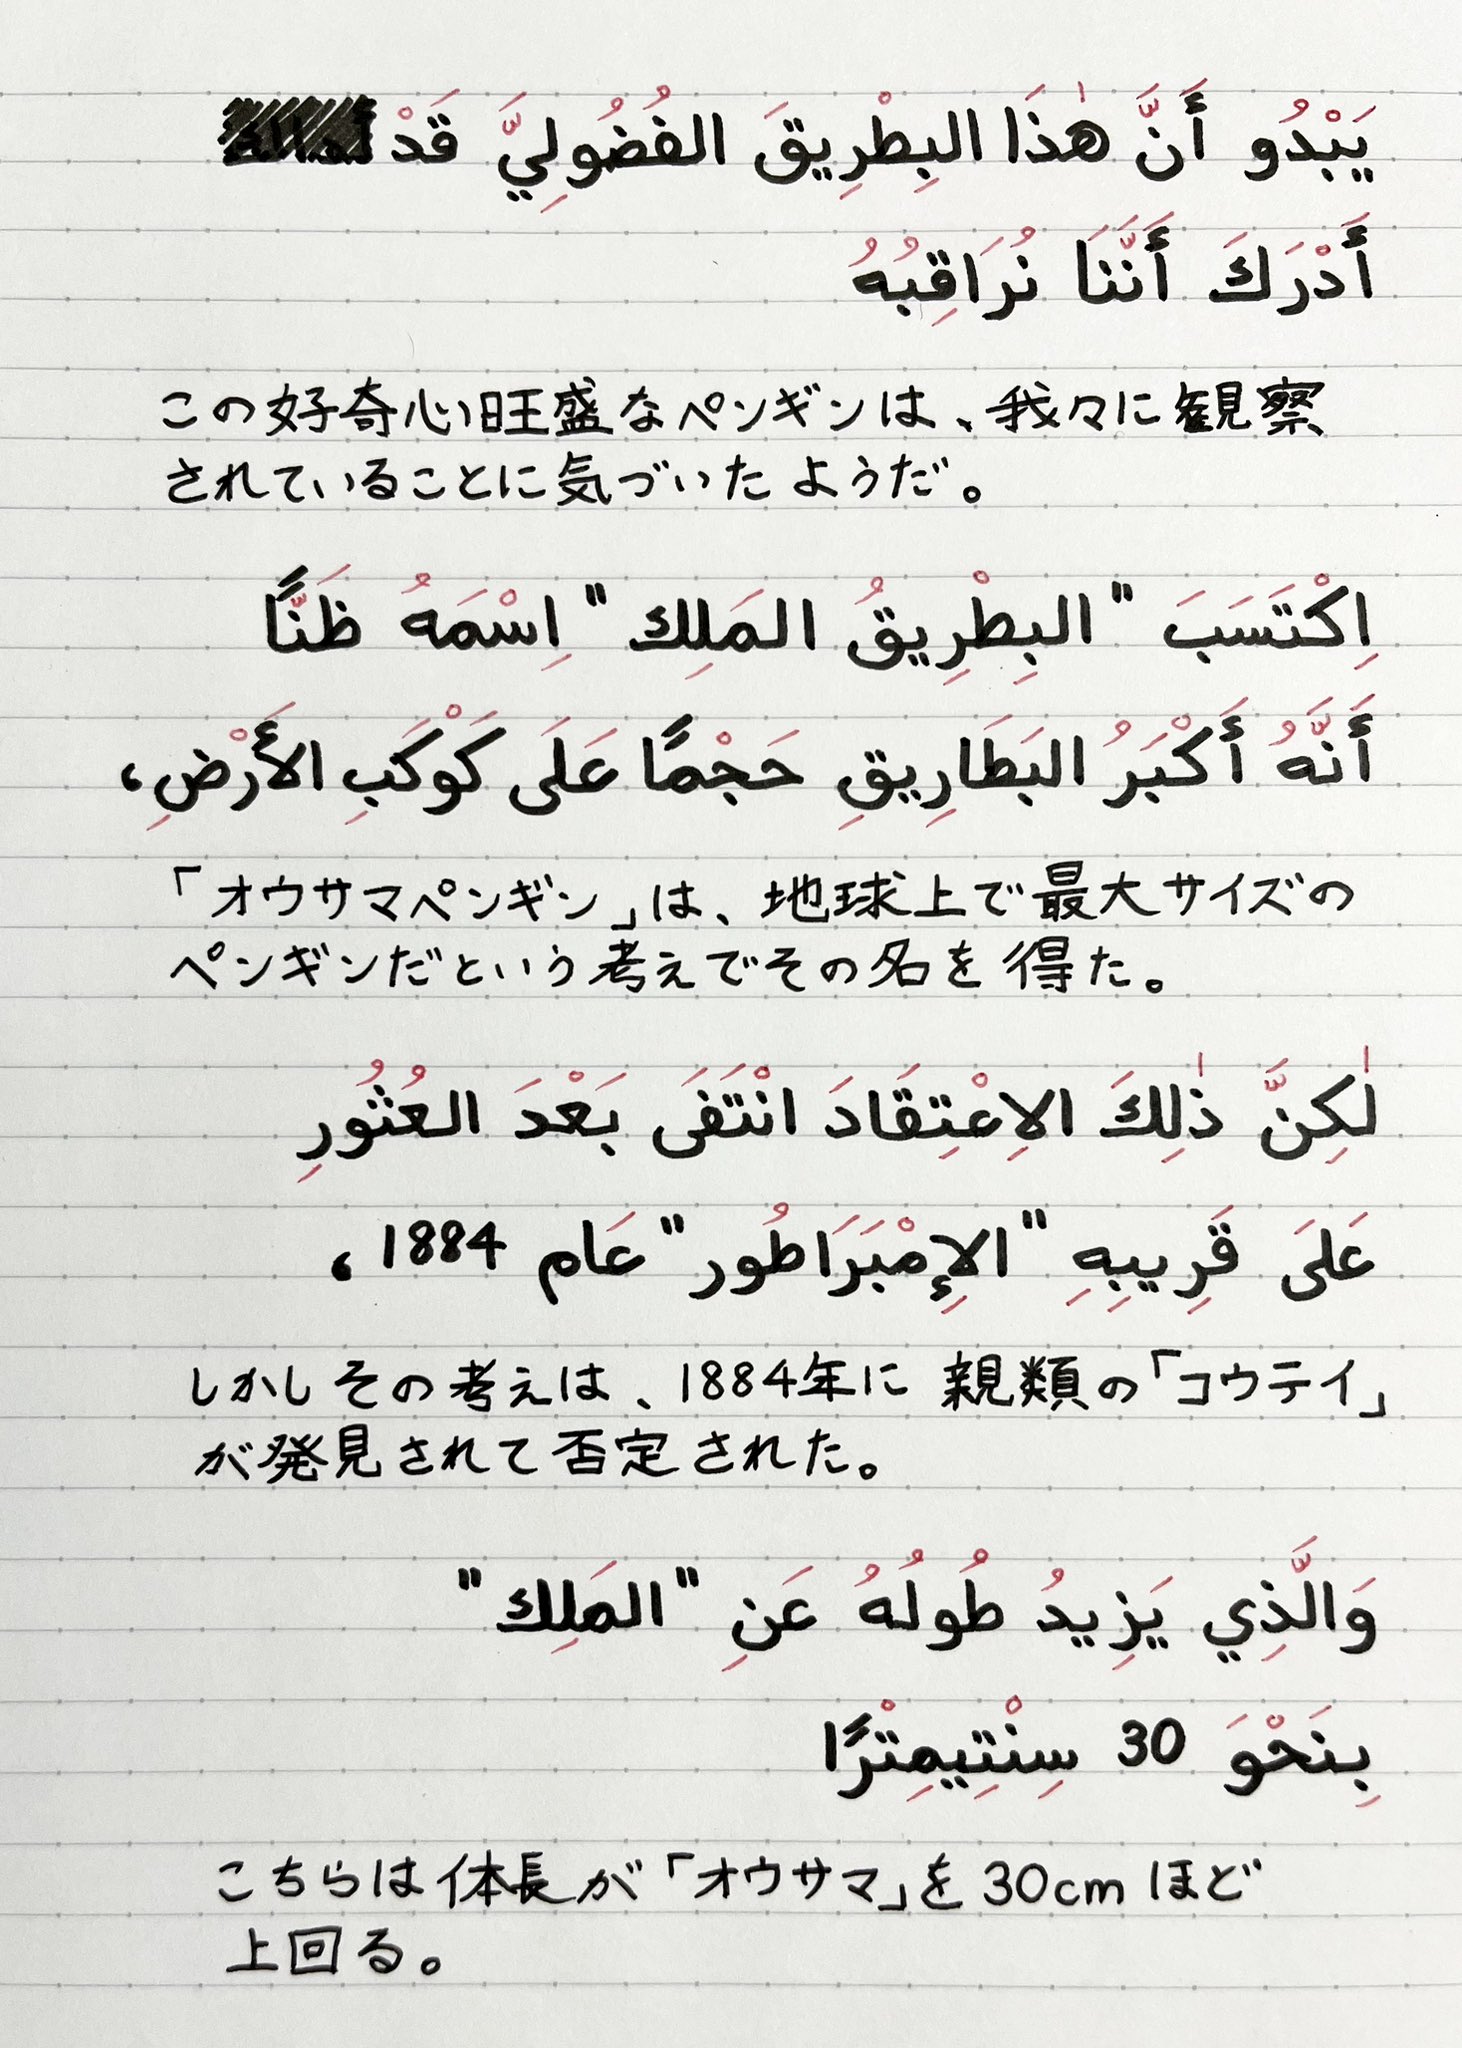 يَبْدُو أَنَّ هٰذَا البِطْرِيقَ الفُضُولِيَّ قَدْ
أَدْرَكَ أَنَّنَا نُرَاقِبُهُ
この好奇心旺盛なペンギンは、我々に観察
されていることに気づいたようだ。
اِكْتَسَبَ "البِطْرِيقُ المَلِك" اِسْمَهُ ظَنًّا
أَنَّهُ أَكْبَرُ البَطَارِيقِ حَجْمًا عَلَى كَوْكَبِ الأَرْضِ،
「オウサマペンギン」は、地球上で最大サイズの
ペンギンだという考えでその名を得た。
لٰكِنَّ ذٰلِكَ الاِعْتِقَادَ انْتَفَى بَعْدَ العُثُورِ
عَلَى قَرِيبِهِ "الإِمْبَرَاطُور" عَام 1884،
しかしその考えは、1884年に親類の「コウテイ」
が発見されて否定された。
وَالَّذِي يَزِيدُ طُولُهُ عَنِ "المَلِك"
بِنَحْوَ 30 سِنْتِيمِتْرًا
こちらは体長が「オウサマ」を30cmほど
上回る。